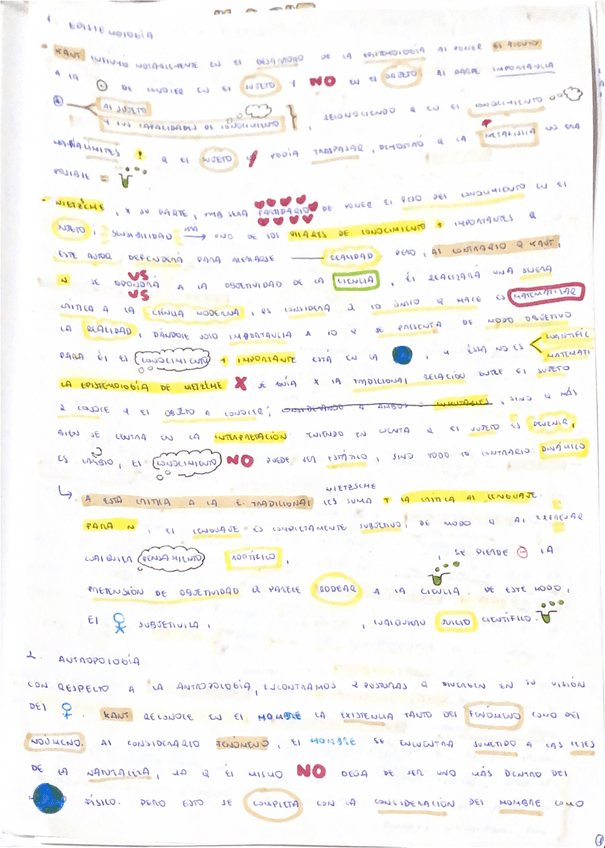 1. EPISTEMOLOGÍA
KANT INFLUYÓ NOTABLEMENTE EN EL DESARROLLO DE LA EPISTEMOLOGÍA AL PONER EL ACENTO
A LA DE CONOCER EN EL SUJETO Y NO EN EL OBJETO AL DARLE IMPORTANCIA
AL SUJETO
Y LAS CAPACIDADES DE CONOCIMIENTO, RECONOCIENDO Q EN EL CONOCIMIENTO
HABÍA LÍMITES Q EL SUJETO PODÍA TRASPASAR, DEMOSTRÓ Q LA METAFÍSICA NO ERA
POSIBLE =
- NIETZSCHE, X SU PARTE, TMB SERÁ PARTIDARIO DE PONER EL PESO DEL CONOCIMIENTO EN EL
SUJETO; SENSIBILIDAD → UNO DE LOS PILARES DE CONOCIMIENTO + IMPORTANTES Q
ESTE AUTOR DEFENDERÁ PARA ACERCARSE REALIDAD PERO, AL CONTRARIO Q KANT,
N SE OPONDRÁ A LA OBJETIVIDAD DE LA CIENCIA, ÉL REALIZARÁ UNA SEVERA
VS
VS
CRÍTICA A LA CIENCIA MODERNA, PS CONSIDERA Q LO ÚNICO Q HACE ES MATEMATIZAR
LA REALIDAD, DÁNDOLE SOLO IMPORTANCIA A LO Q SE PRESENTA DE MODO OBJETIVO
PARA ÉL EL CONOCIMIENTO + IMPORTANTE ESTÁ EN LA, Y ÉSTA NO ES CUANTIFIC
MATEMATI
LA EPISTEMOLOGÍA DE NIETZSCHE X SE GUÍA X LA TRADICIONAL RELACIÓN ENTRE EL SUJETO
Q CONOCE Y EL OBJETO A CONOCER; CONSIDERANDO A AMBOS INMUTABLES, SINO Q MÁS
BIEN SE CENTRA EN LA INTERPRETACIÓN TENIENDO EN CUENTA Q EL SUJETO ES DEVENIR,
ES CAMBIO, EL CONOCIMIENTO NO PUEDE SER ESTÁTICO, SINO TODO LO CONTRARIO DINÁMICO
NIETZSCHE
↳ A ESTA CRÍTICA A LA E. TRADICIONAL LES SUMA LA CRÍTICA AL LENGUAJE.
PARA N, EL LENGUAJE ES COMPLETAMENTE SUBJETIVO, DE MODO Q AL EXPRESAR
CUALQUIER PENSAMIENTO, SE PIERDE LA
PRETENSIÓN DE OBJETIVIDAD Q PARECE RODEAR A LA CIENCIA. DE ESTE MODO,
EL SUBJETIVIZA, CUALQUIER JUICIO CIENTÍFICO.
2. ANTROPOLOGÍA
CON RESPECTO A LA ANTROPOLOGÍA, ENCONTRAMOS 2 POSTURAS Q DIVERGEN EN SU VISIÓN
DEL. KANT RECONOCE EN EL HOMBRE LA EXISTENCIA TANTO DEL FENÓMENO COMO DEL
NOÚMENO. AL CONSIDERARLO FENÓMENO, EL HOMBRE SE ENCUENTRA SUMETIDO A LAS LEYES
DE LA NATURALEZA, YA Q ÉL MISMO NO DEJA DE SER UNO MÁS DENTRO DEL
FÍSICO. PERO ESTO SE COMPLETA CON LA CONSIDERACIÓN DEL HOMBRE COMO